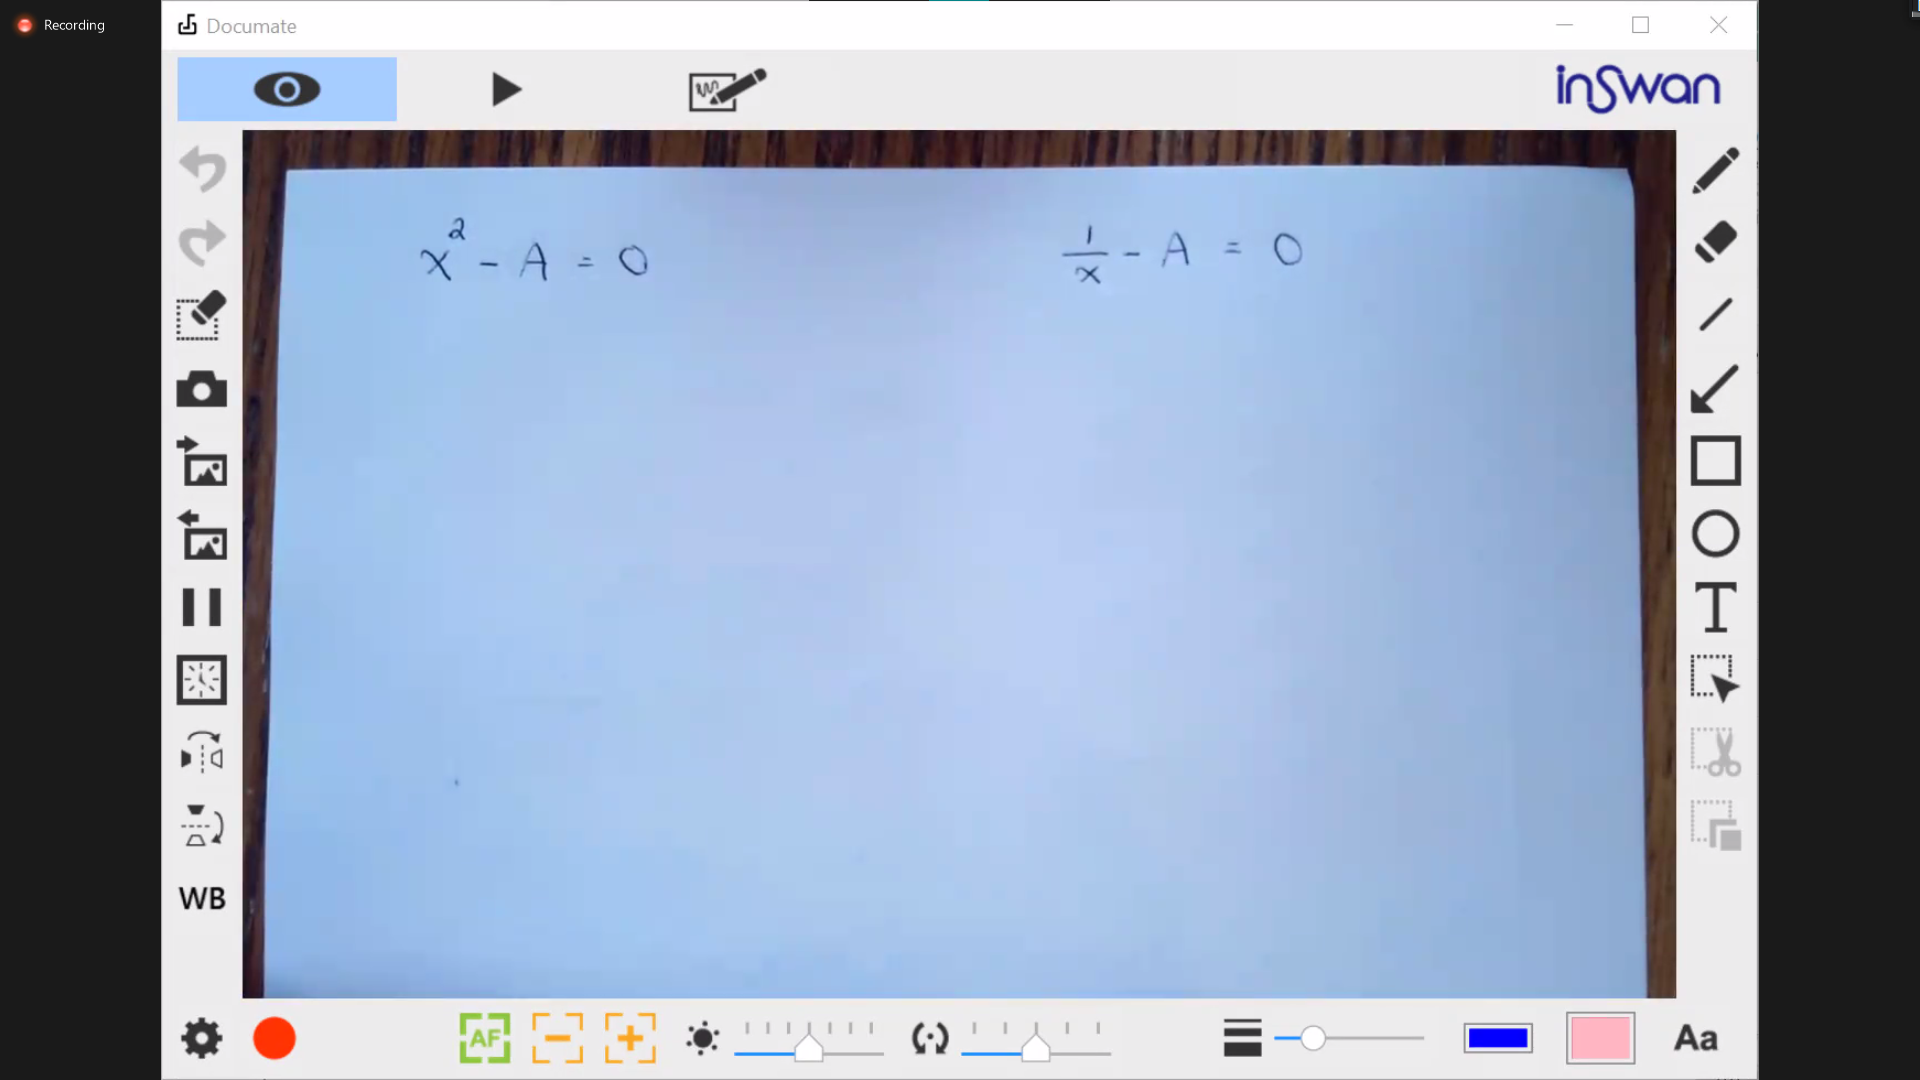 Recording
Documate
inswan
x² - A = 0
1/x - A = 0
T
WB
AF
Aa